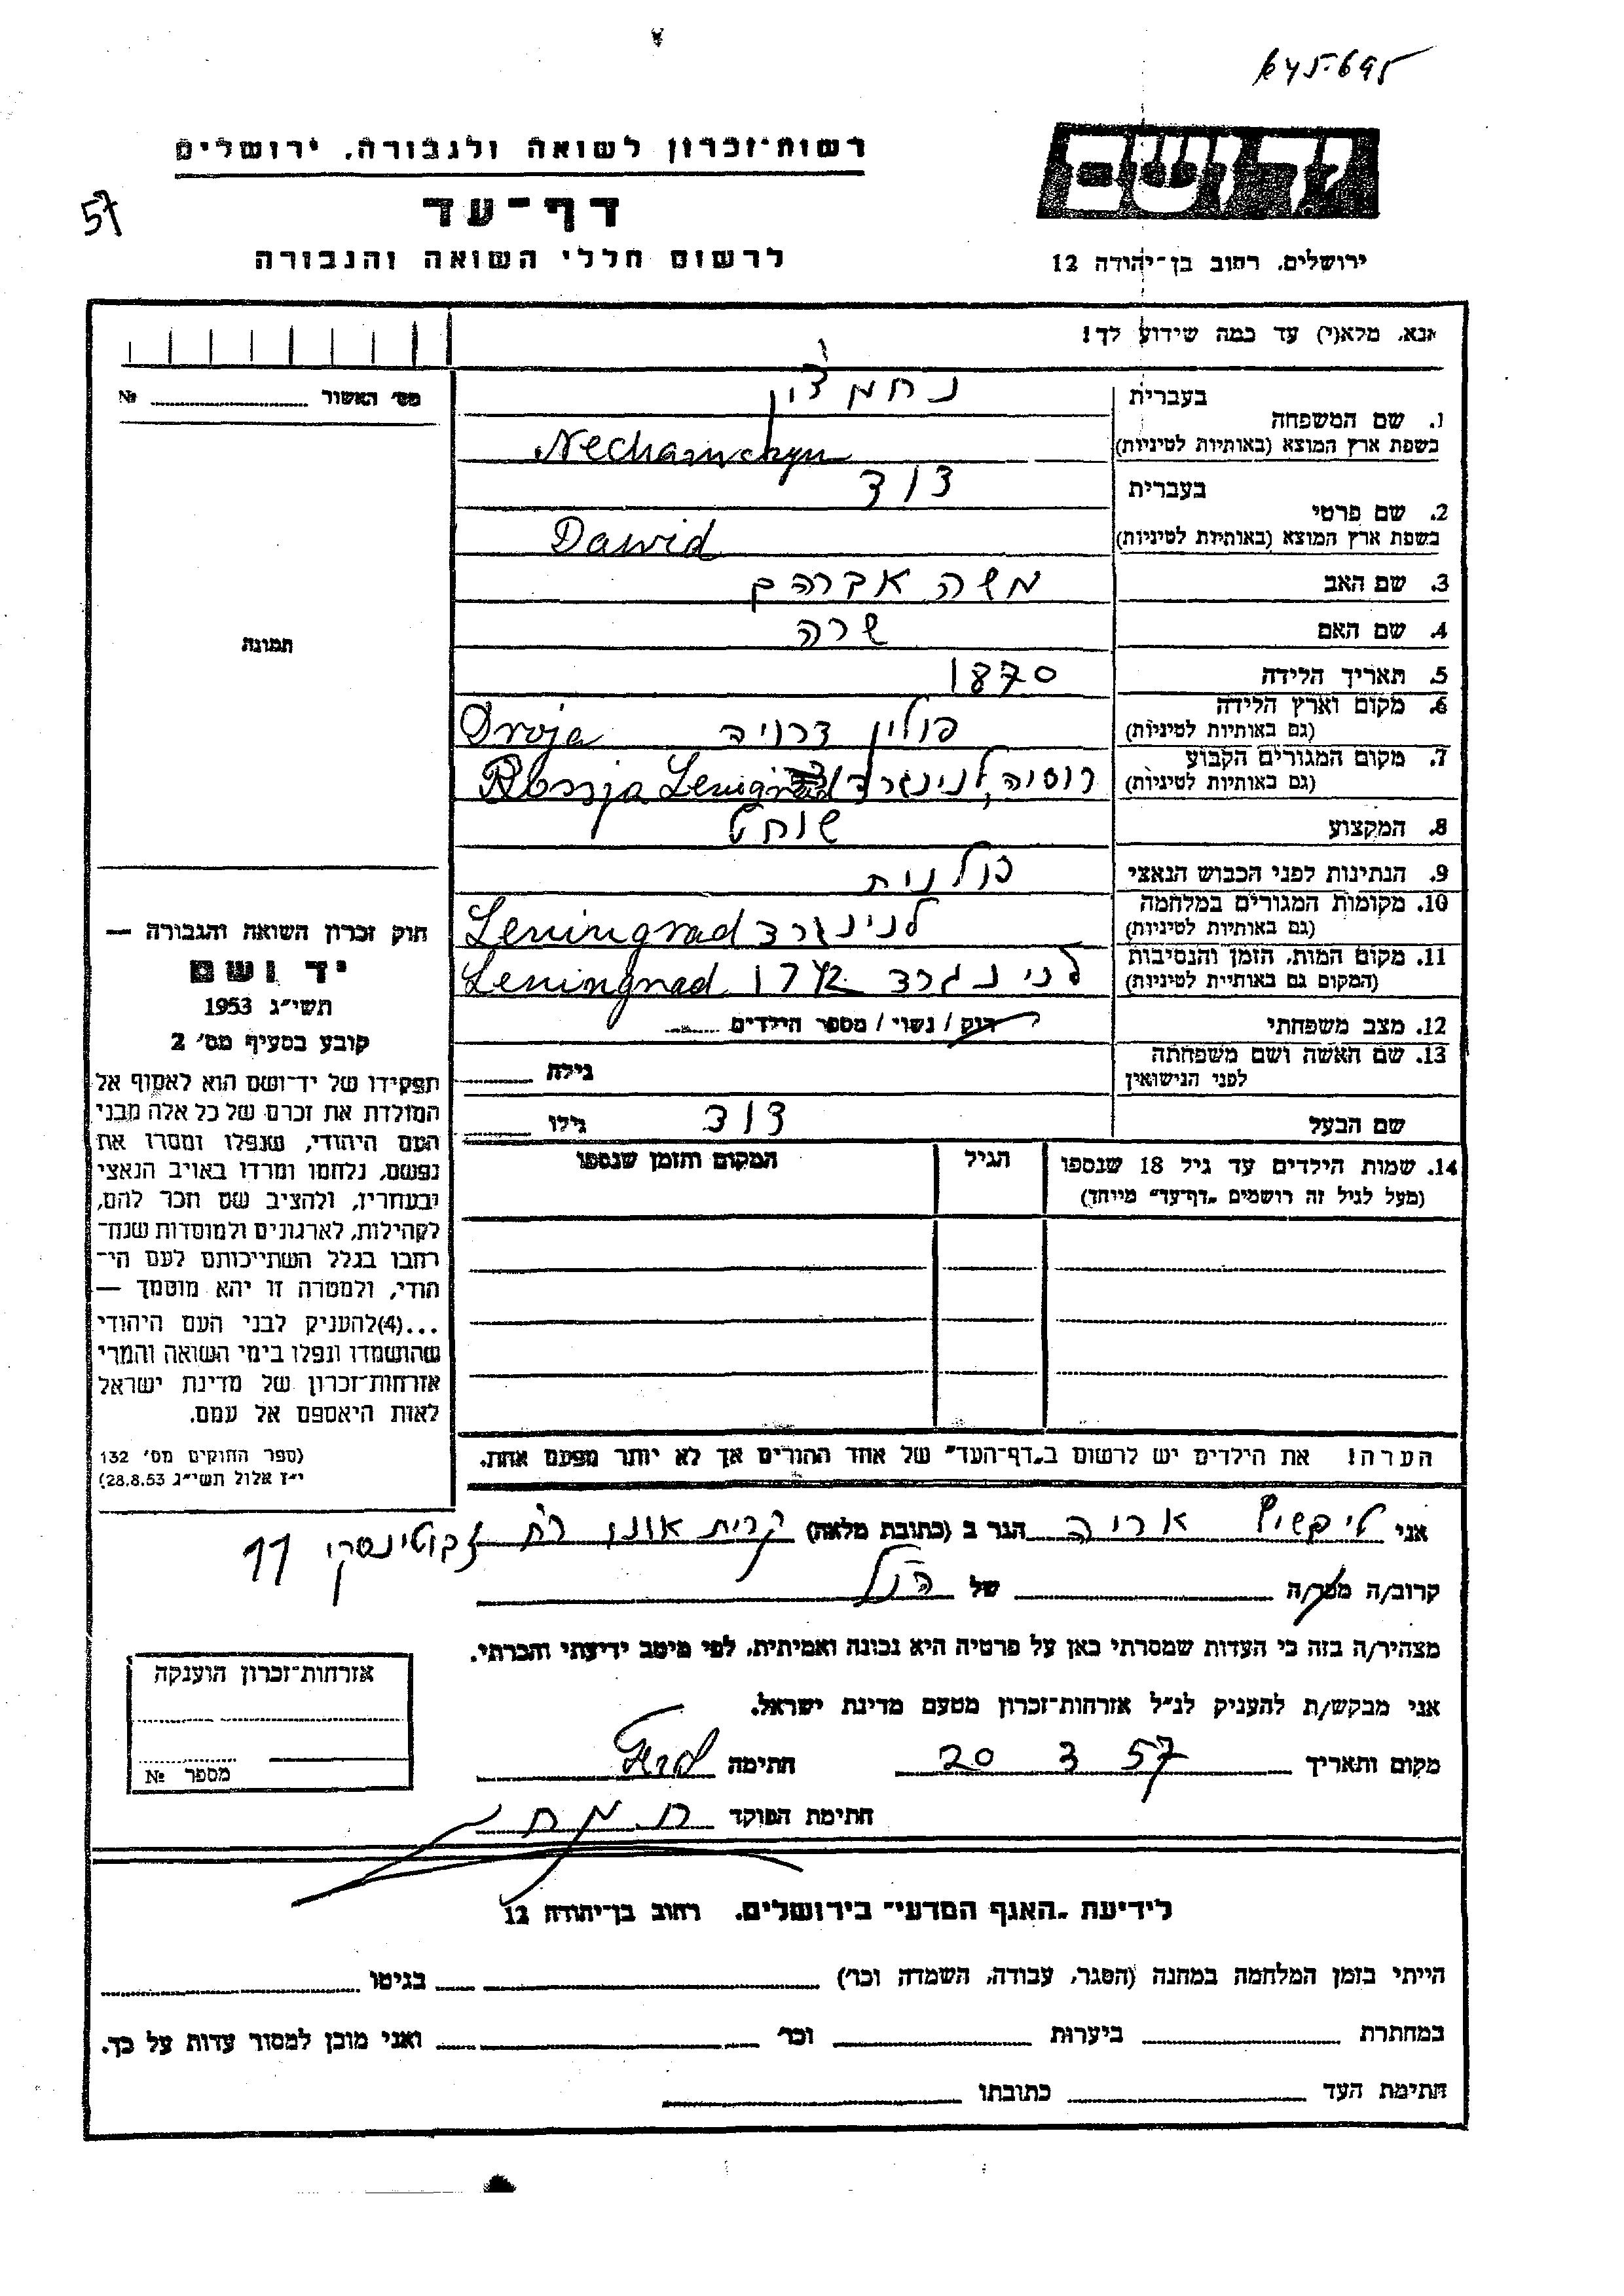 645.695
רשות־זכרון לשואה ולגבורה, ירושלים
דף־עד
57
לרשום חללי השואה והגבורה
ירושלים, רחוב בן־יהודה 12
אנא, מלא(י) עד כמה שידוע לך!
מס׳ האשור № 
1. שם המשפחה
בעברית נחמצ'ין
בשפת ארץ המוצא (באותיות לטיניות) Nechamchyn
2. שם פרטי
בעברית דוד
בשפת ארץ המוצא (באותיות לטיניות) Dawid
3. שם האב משה אברהם
4. שם האם שרה
5. תאריך הלידה 1870
6. מקום וארץ הלידה (גם באותיות לטיניות) פולין דרויה Droja
7. מקום המגורים הקבוע (גם באותיות לטיניות) רוסיה, לנינגרד Leningrad
8. המקצוע שוחט
9. הנתינות לפני הכבוש הנאצי פולנית
10. מקומות המגורים במלחמה (גם באותיות לטיניות) לנינגרד Leningrad
11. מקום המות, הזמן והנסיבות (המקום גם באותיות לטיניות) לנינגרד Leningrad
12. מצב משפחתי רוק / נשוי / מספר הילדים
13. שם האשה ושם משפחתה לפני הנישואין גילה
שם הבעל דוד גילו
14. שמות הילדים עד גיל 18 שנספו
(מעל לגיל זה רושמים „דף־עד" מיוחד)
הגיל
המקום והזמן שנספו
הערה! את הילדים יש לרשום ב„דף־העד" של אחד ההורים אך לא יותר מפעם אחת.
תמונה
חוק זכרון השואה והגבורה —
יד ושם
תשי״ג 1953
קובע בסעיף מס׳ 2
תפקידו של יד־ושם הוא לאסוף אל
המולדת את זכרם של כל אלה מבני
העם היהודי, שנפלו ומסרו את
נפשם, נלחמו ומרדו באויב הנאצי
ובעוזריו, ולהציב שם וזכר להם,
לקהילות, לארגונים ולמוסדות שנח־
רבו בגלל השתייכותם לעם הי־
הודי, ולמטרה זו יהא מוסמך —
...(4)להעניק לבני העם היהודי
שהושמדו ונפלו בימי השואה והמרי
אזרחות־זכרון של מדינת ישראל
לאות היאספם אל עמם.
(ספר החוקים מס׳ 132
י״ז אלול תשי״ג 28.8.53)
אני ליפשיץ אריה הגר ב (כתובת מלאה) קרית אונו רח ז'בוטינסקי 11
קרוב/ה מכר/ה של הנ"ל
מצהיר/ה בזה כי העדות שמסרתי כאן על פרטיה היא נכונה ואמיתית, לפי מיטב ידיעתי והכרתי.
אני מבקש/ת להעניק לנ״ל אזרחות־זכרון מטעם מדינת ישראל.
מקום ותאריך 20 3 57 חתימה
חתימת הפוקד
אזרחות־זכרון הוענקה
מספר №
לידיעת „האגף המדעי" בירושלים, רחוב בן־יהודה 12
הייתי בזמן המלחמה במחנה (הסגר, עבודה, השמדה וכו׳) בגיטו
במחתרת ביערות וכו׳ ואני מוכן למסור עדות על כך.
חתימת העד כתובתו